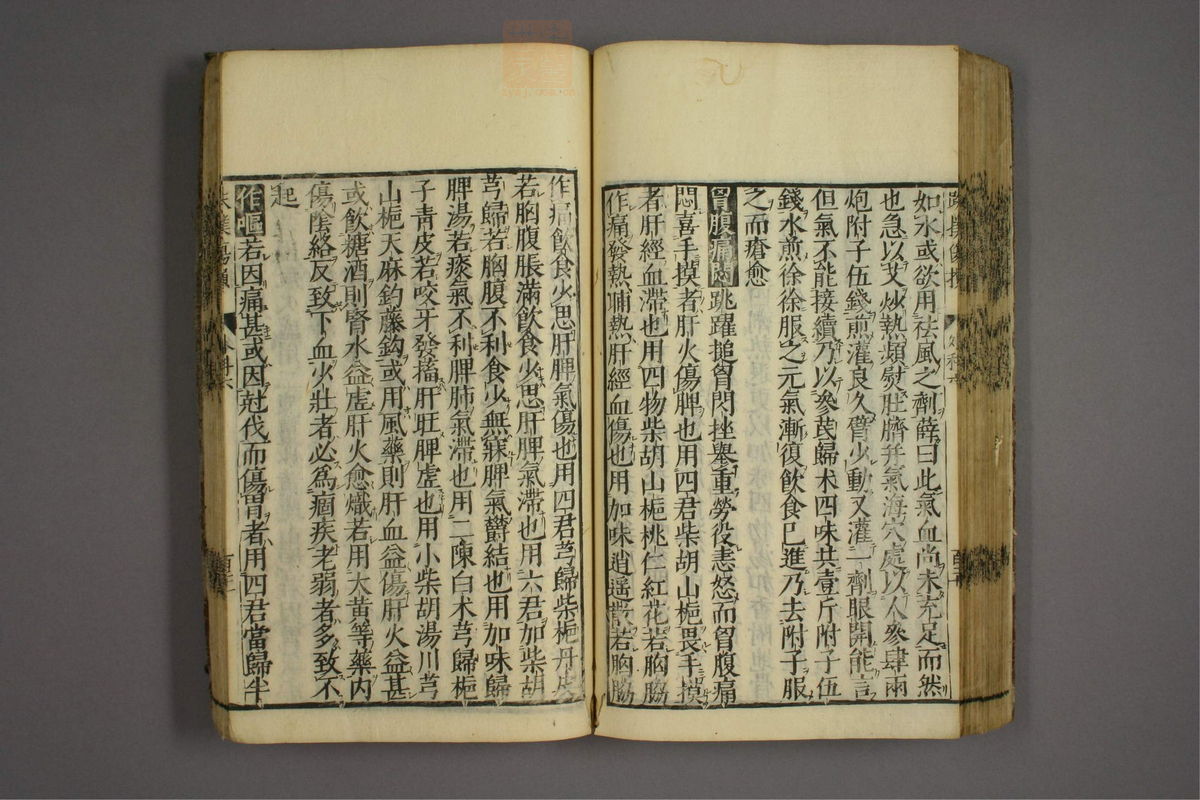 如水或欲用祛風之劑薛曰此氣血尚未充足而然
也急以艾炒熱頻熨肚臍并氣海穴處以人參肆兩
炮附子伍錢煎灌良久臂少動又灌一劑眼開能言
但氣不能接續乃以參芪歸朮四味共壹斤附子伍
錢水煎徐徐服之元氣漸復飲食已進乃去附子服
之而瘡愈
胷腹痛悶跳躍搥胷閃挫舉重勞役恚怒而胷腹痛
悶喜手摸者肝火傷脾也用四君柴胡山梔畏手摸
者肝經血滯也用四物柴胡山梔桃仁紅花若胸脇
作痛發熱晡熱肝經血傷也用加味逍遥散若胸脇
作痛飲食少思肝脾氣傷也用四君芎歸柴梔丹皮
若胸腹脹滿飲食少思肝脾氣滯也用六君加柴胡
芎歸若胸腹不利食少無寐脾氣欝結也用加味歸
脾湯若痰氣不利脾肺氣滯也用二陳白朮芎歸梔
子青皮若咬牙發搐肝旺脾虛也用小柴胡湯川芎
山梔天麻釣藤鈎或用風藥則肝血益傷肝火益甚
或飲糖酒則腎水益虛肝火愈熾若用大黃等藥内
傷陰絡反致下血少壯者必為痼疾老弱者多致不
起
作嘔若因痛甚或因尅伐而傷胃者用四君當歸半